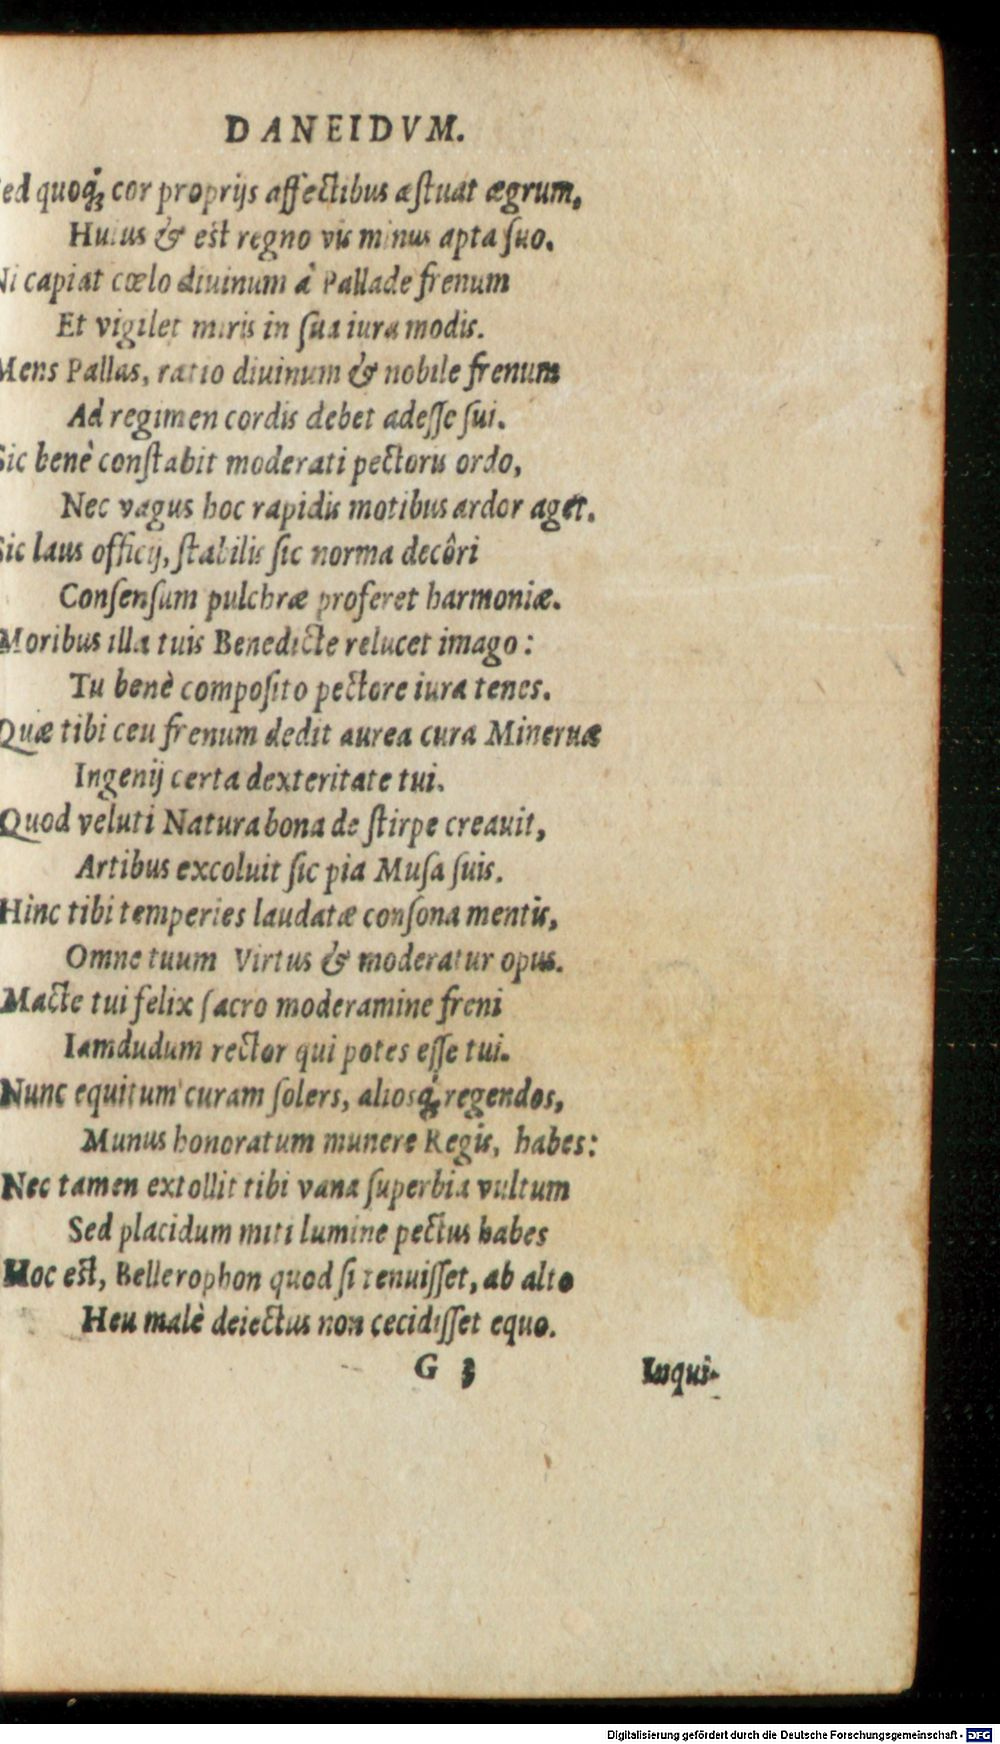 DANEIDVM.
Sed quoq́; cor proprijs affectibus æstuat ægrum,
Huius & est regno vis minus apta suo.
Ni capiat cœlo diuinum à Pallade frenum
Et vigilet miris in sua iura modis.
Mens Pallas, ratio diuinum & nobile frenum
Ad regimen cordis debet adesse sui.
Sic benè constabit moderati pectoris ordo,
Nec vagus hoc rapidis motibus ardor aget.
Sic laus officij, stabilis sic norma decôri
Consensum pulchræ proferet harmoniæ.
Moribus illa tuis Benedicte relucet imago:
Tu benè composito pectore iura tenes.
Quæ tibi ceu frenum dedit aurea cura Mineruæ
Ingenij certa dexteritate tui.
Quod veluti Natura bona de stirpe creauit,
Artibus excoluit sic pia Musa suis.
Hinc tibi temperies laudatæ consona mentis,
Omne tuum Virtus & moderatur opus.
Macte tui felix sacro moderamine freni
Iamdudum rector qui potes esse tui.
Nunc equitum curam solers, aliosq́; regendos,
Munus honoratum munere Regis, habes:
Nec tamen extollit tibi vana superbia vultum
Sed placidum miti lumine pectus habes
Hoc est, Bellerophon quod si tenuisset, ab alto
Heu malè deiectus non cecidisset equo.
G 3 Inqui-
Digitalisierung gefördert durch die Deutsche Forschungsgemeinschaft - DFG